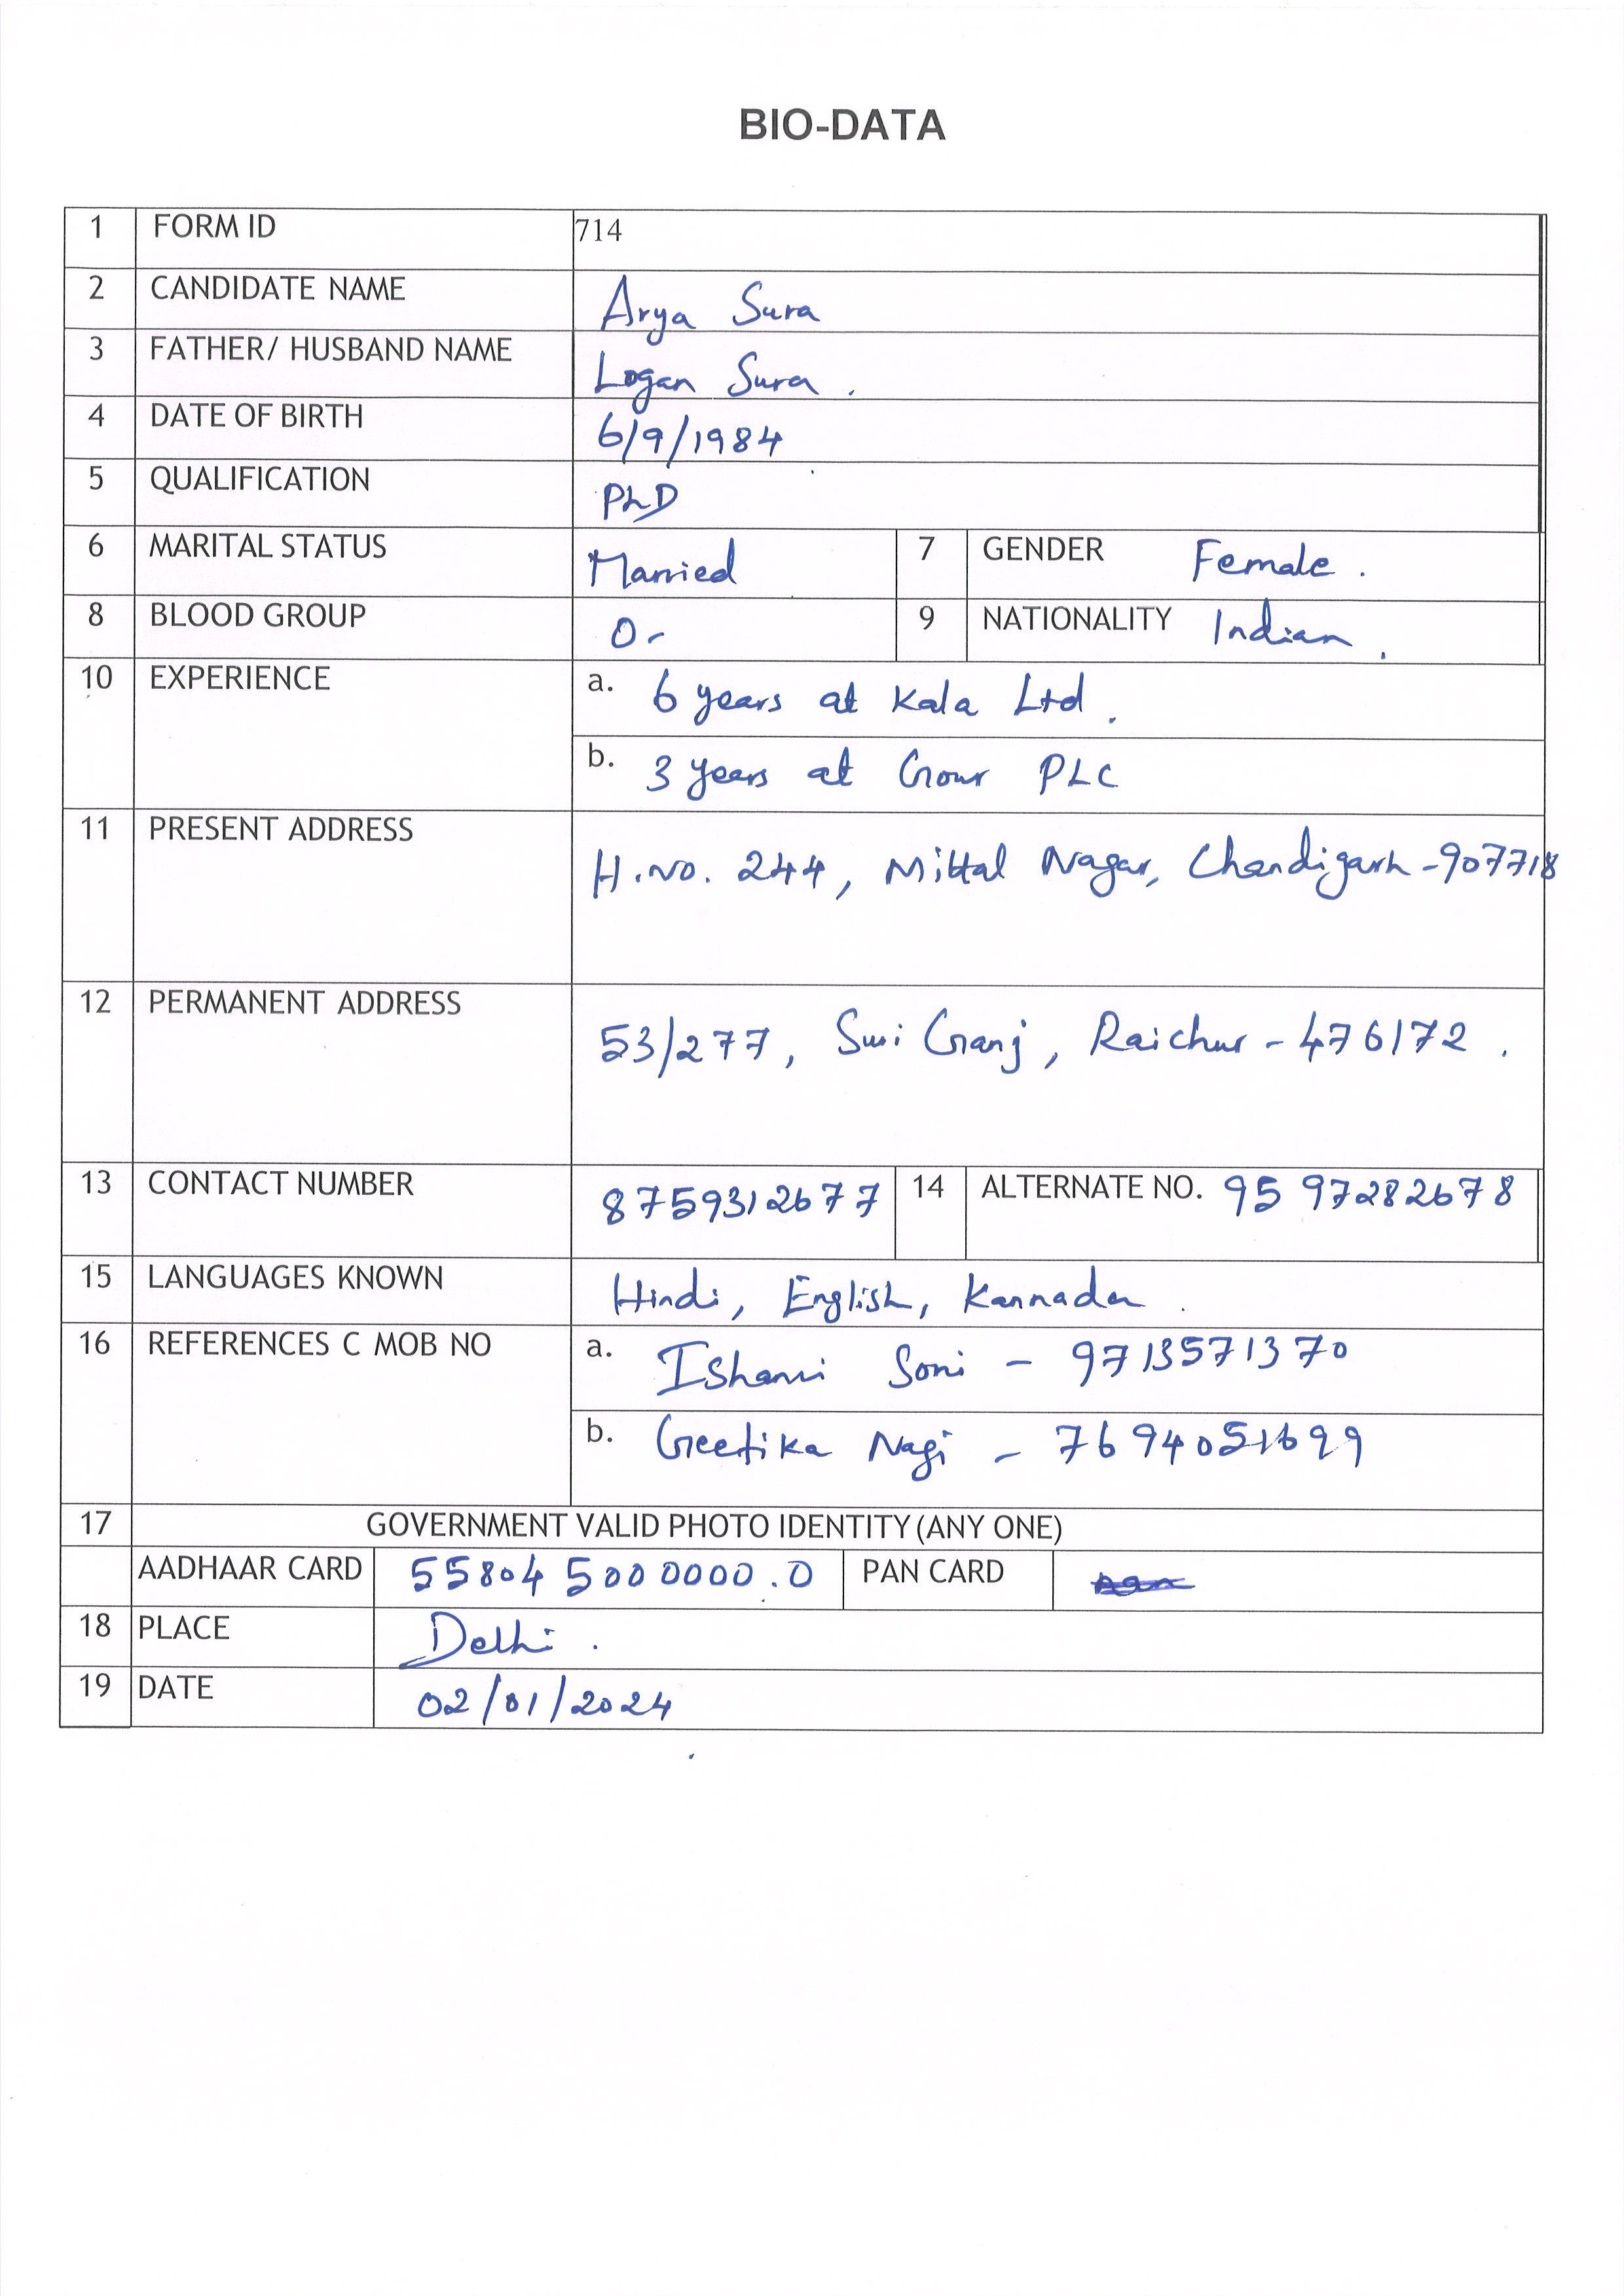 BIO-DATA
1 FORM ID 714
2 CANDIDATE NAME Arya Sura
3 FATHER/ HUSBAND NAME Logan Sura .
4 DATE OF BIRTH 6/9/1984
5 QUALIFICATION PhD
6 MARITAL STATUS Married 7 GENDER Female .
8 BLOOD GROUP O- 9 NATIONALITY Indian .
10 EXPERIENCE a. 6 years at Kala Ltd .
b. 3 years at Gour PLC
11 PRESENT ADDRESS H.No. 244, Mittal Nagar, Chandigarh -907718
12 PERMANENT ADDRESS 53/277, Suri Ganj, Raichur - 476172 .
13 CONTACT NUMBER 8759312677 14 ALTERNATE NO. 95 97282678
15 LANGUAGES KNOWN Hindi, English, Kannada .
16 REFERENCES C MOB NO a. Ishanvi Soni - 9713571370
b. Geetika Nagi - 7694051699
17 GOVERNMENT VALID PHOTO IDENTITY (ANY ONE)
AADHAAR CARD 55804 5000000.0 PAN CARD
18 PLACE Delhi .
19 DATE 02/01/2024